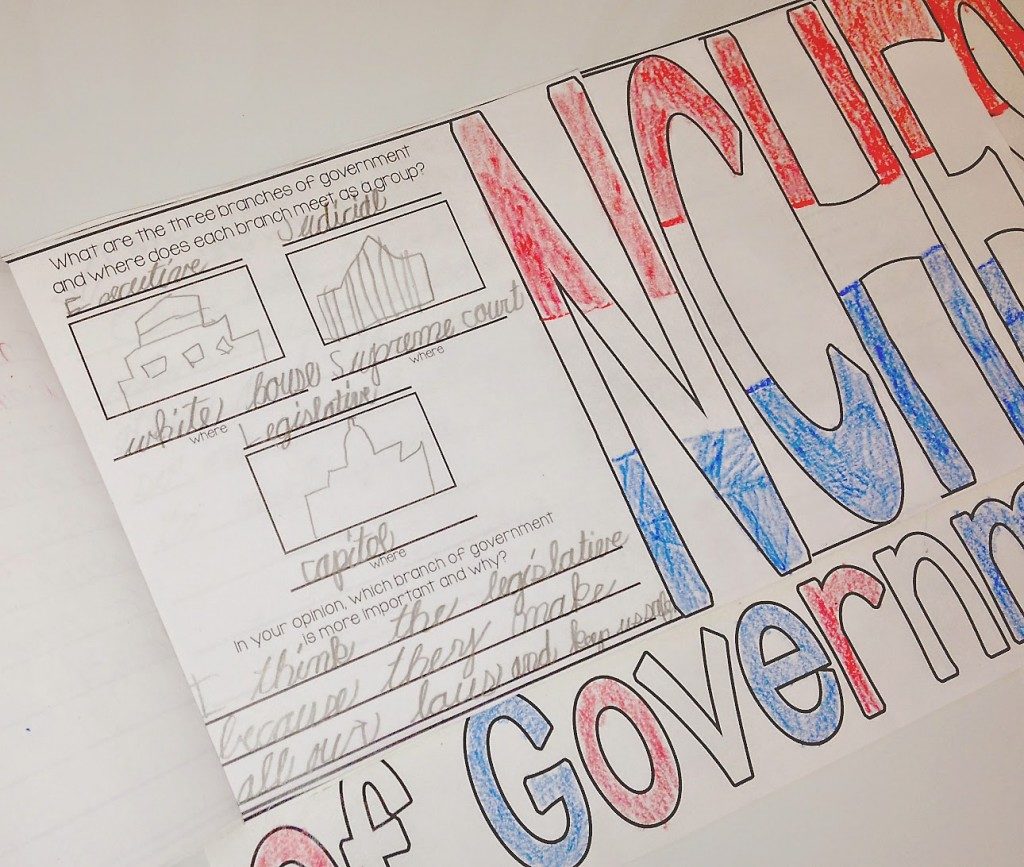 What are the three branches of government
and where does each branch meet as a group?
Executive
Judicial
white house
where
Supreme court
where
Legislative
capitol
where
In your opinion, which branch of government
is more important and why?
I think the legislative
because they make
all our laws and keep us safe
NCHES
of Governm